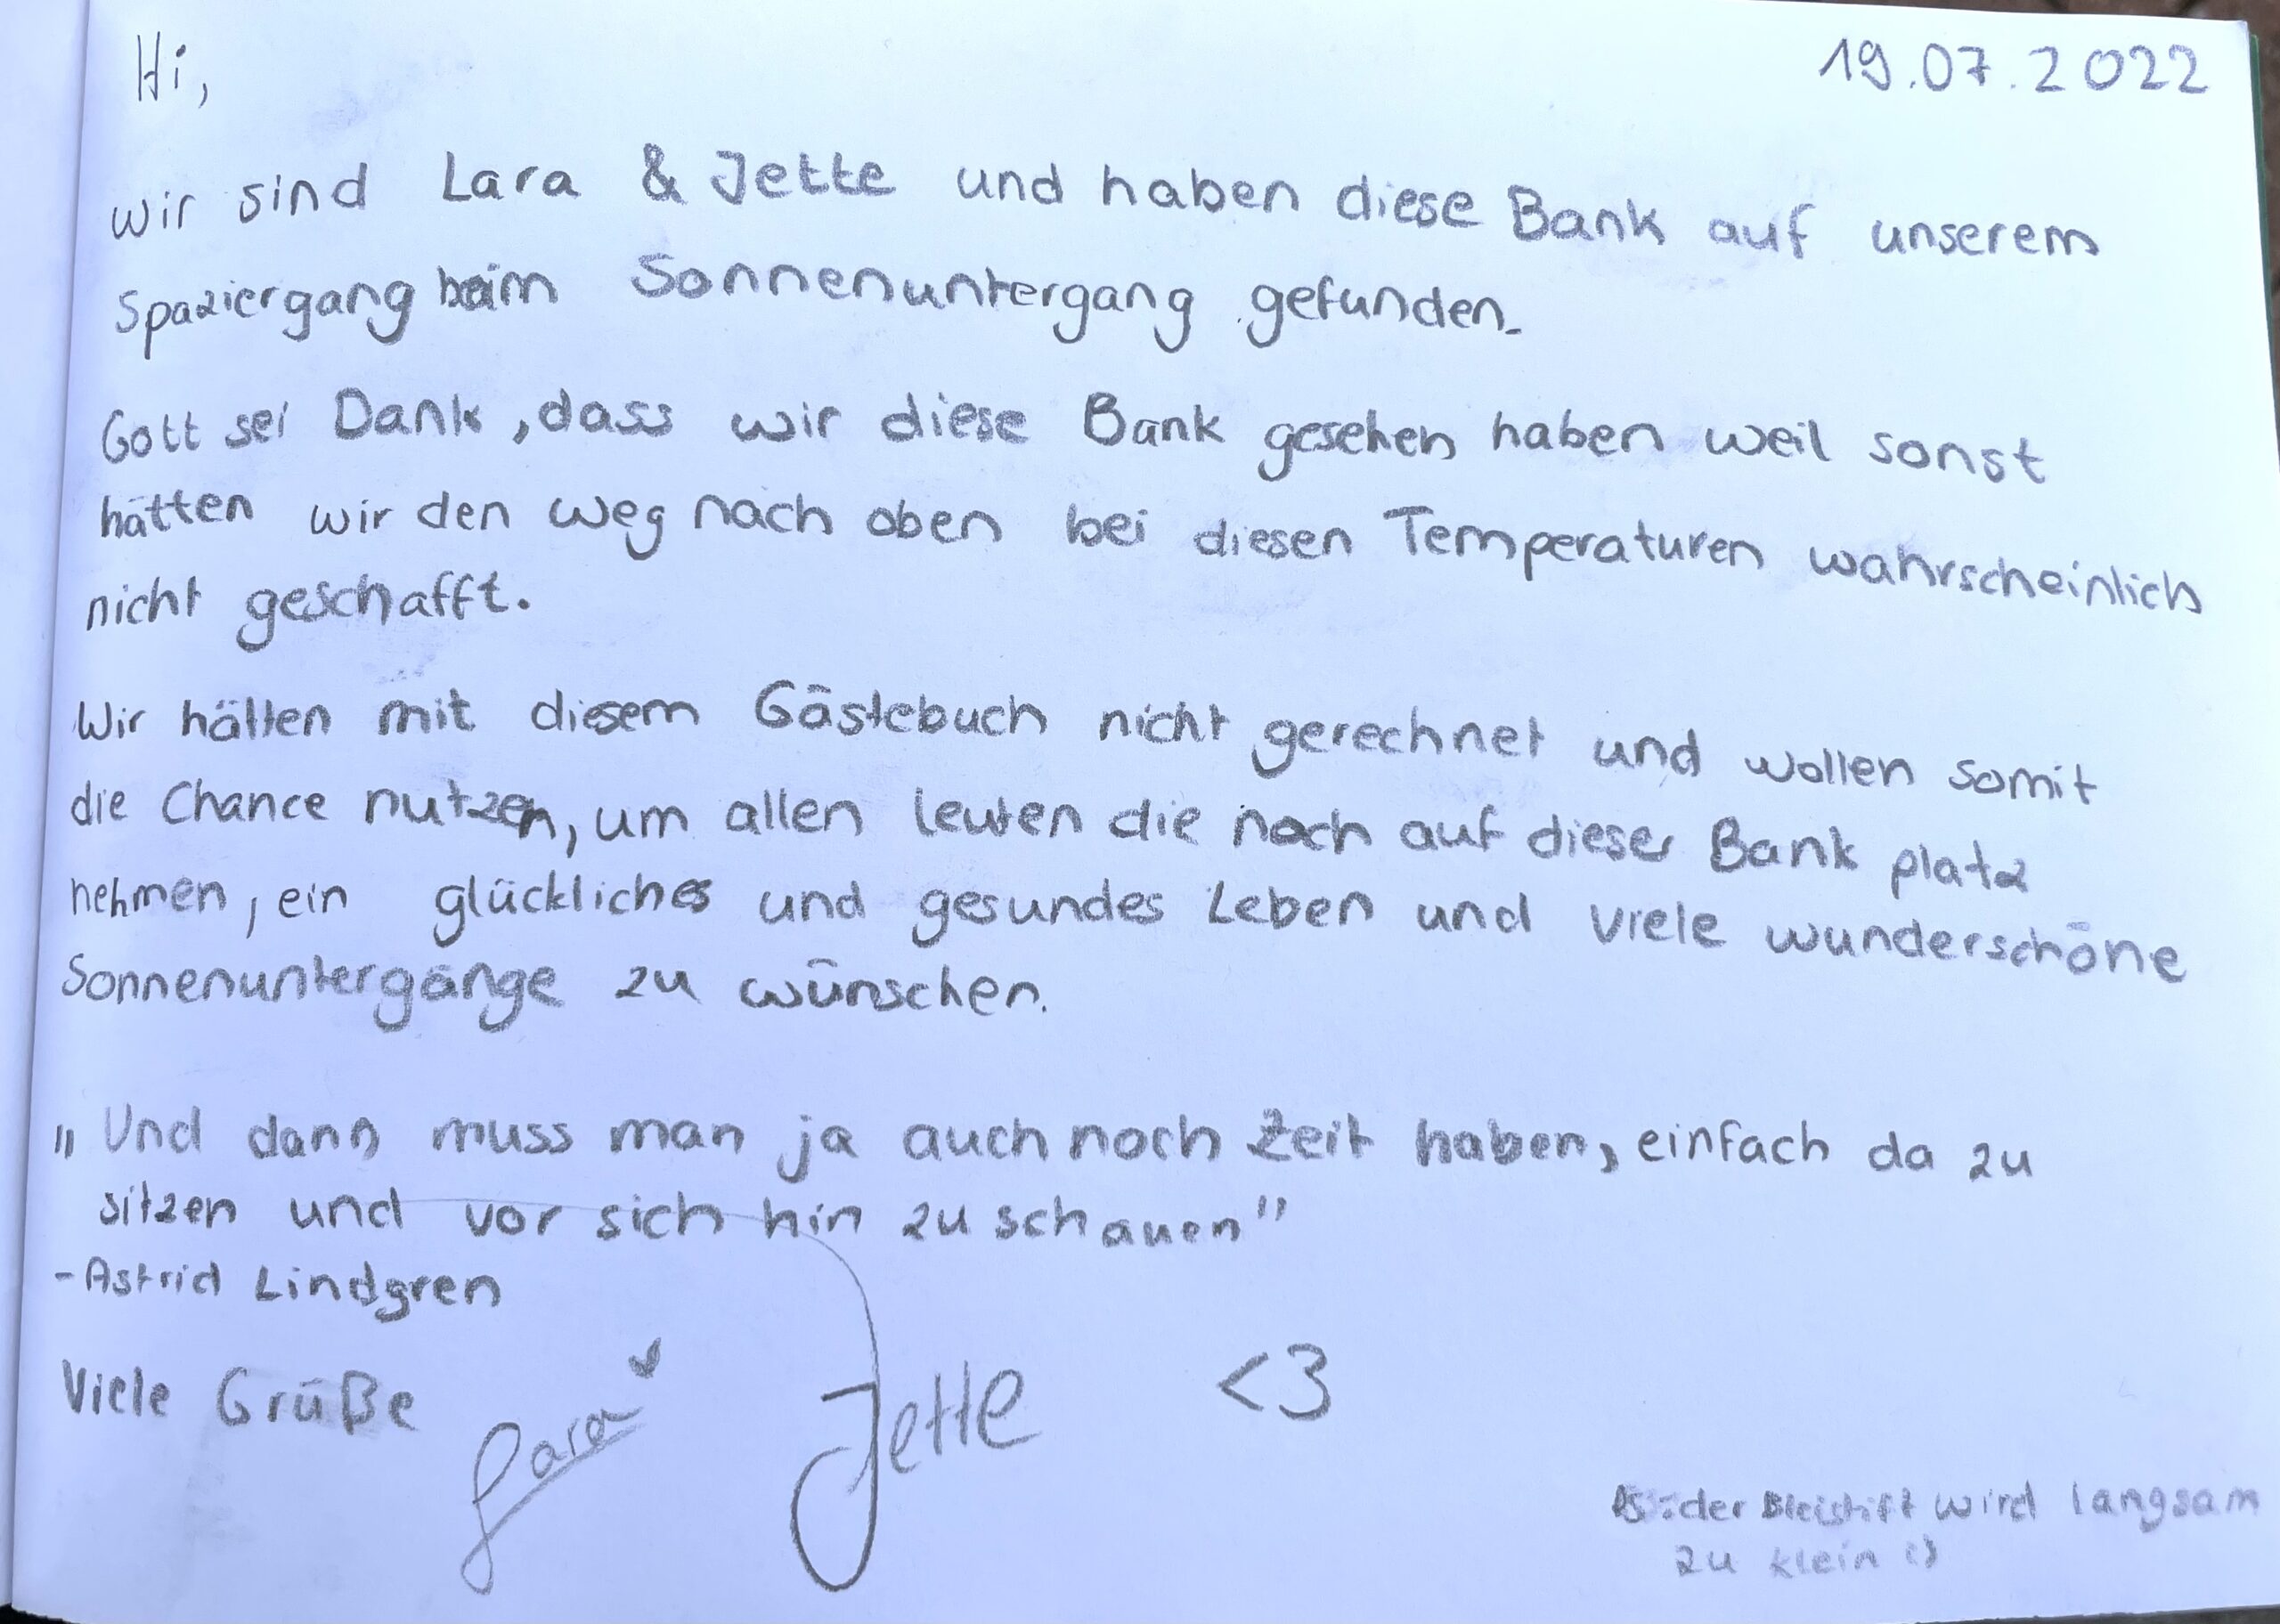 Hi,
19.07.2022
wir sind Lara & Jette und haben diese Bank auf unserem
Spaziergang beim Sonnenuntergang gefunden.
Gott sei Dank, dass wir diese Bank gesehen haben weil sonst
hätten wir den weg nach oben bei diesen Temperaturen wahrscheinlich
nicht geschafft.
Wir hätten mit diesem Gästebuch nicht gerechnet und wollen somit
die Chance nutzen, um allen leuten die noch auf dieser Bank platz
nehmen, ein glückliches und gesundes Leben und viele wunderschöne
Sonnenuntergänge zu wünschen.
„Und dann muss man ja auch noch Zeit haben, einfach da zu
sitzen und vor sich hin zu schauen"
-Astrid Lindgren
Viele Grüße
Lara
Jette
<3
PS: der Bleistift wird langsam
zu klein :)